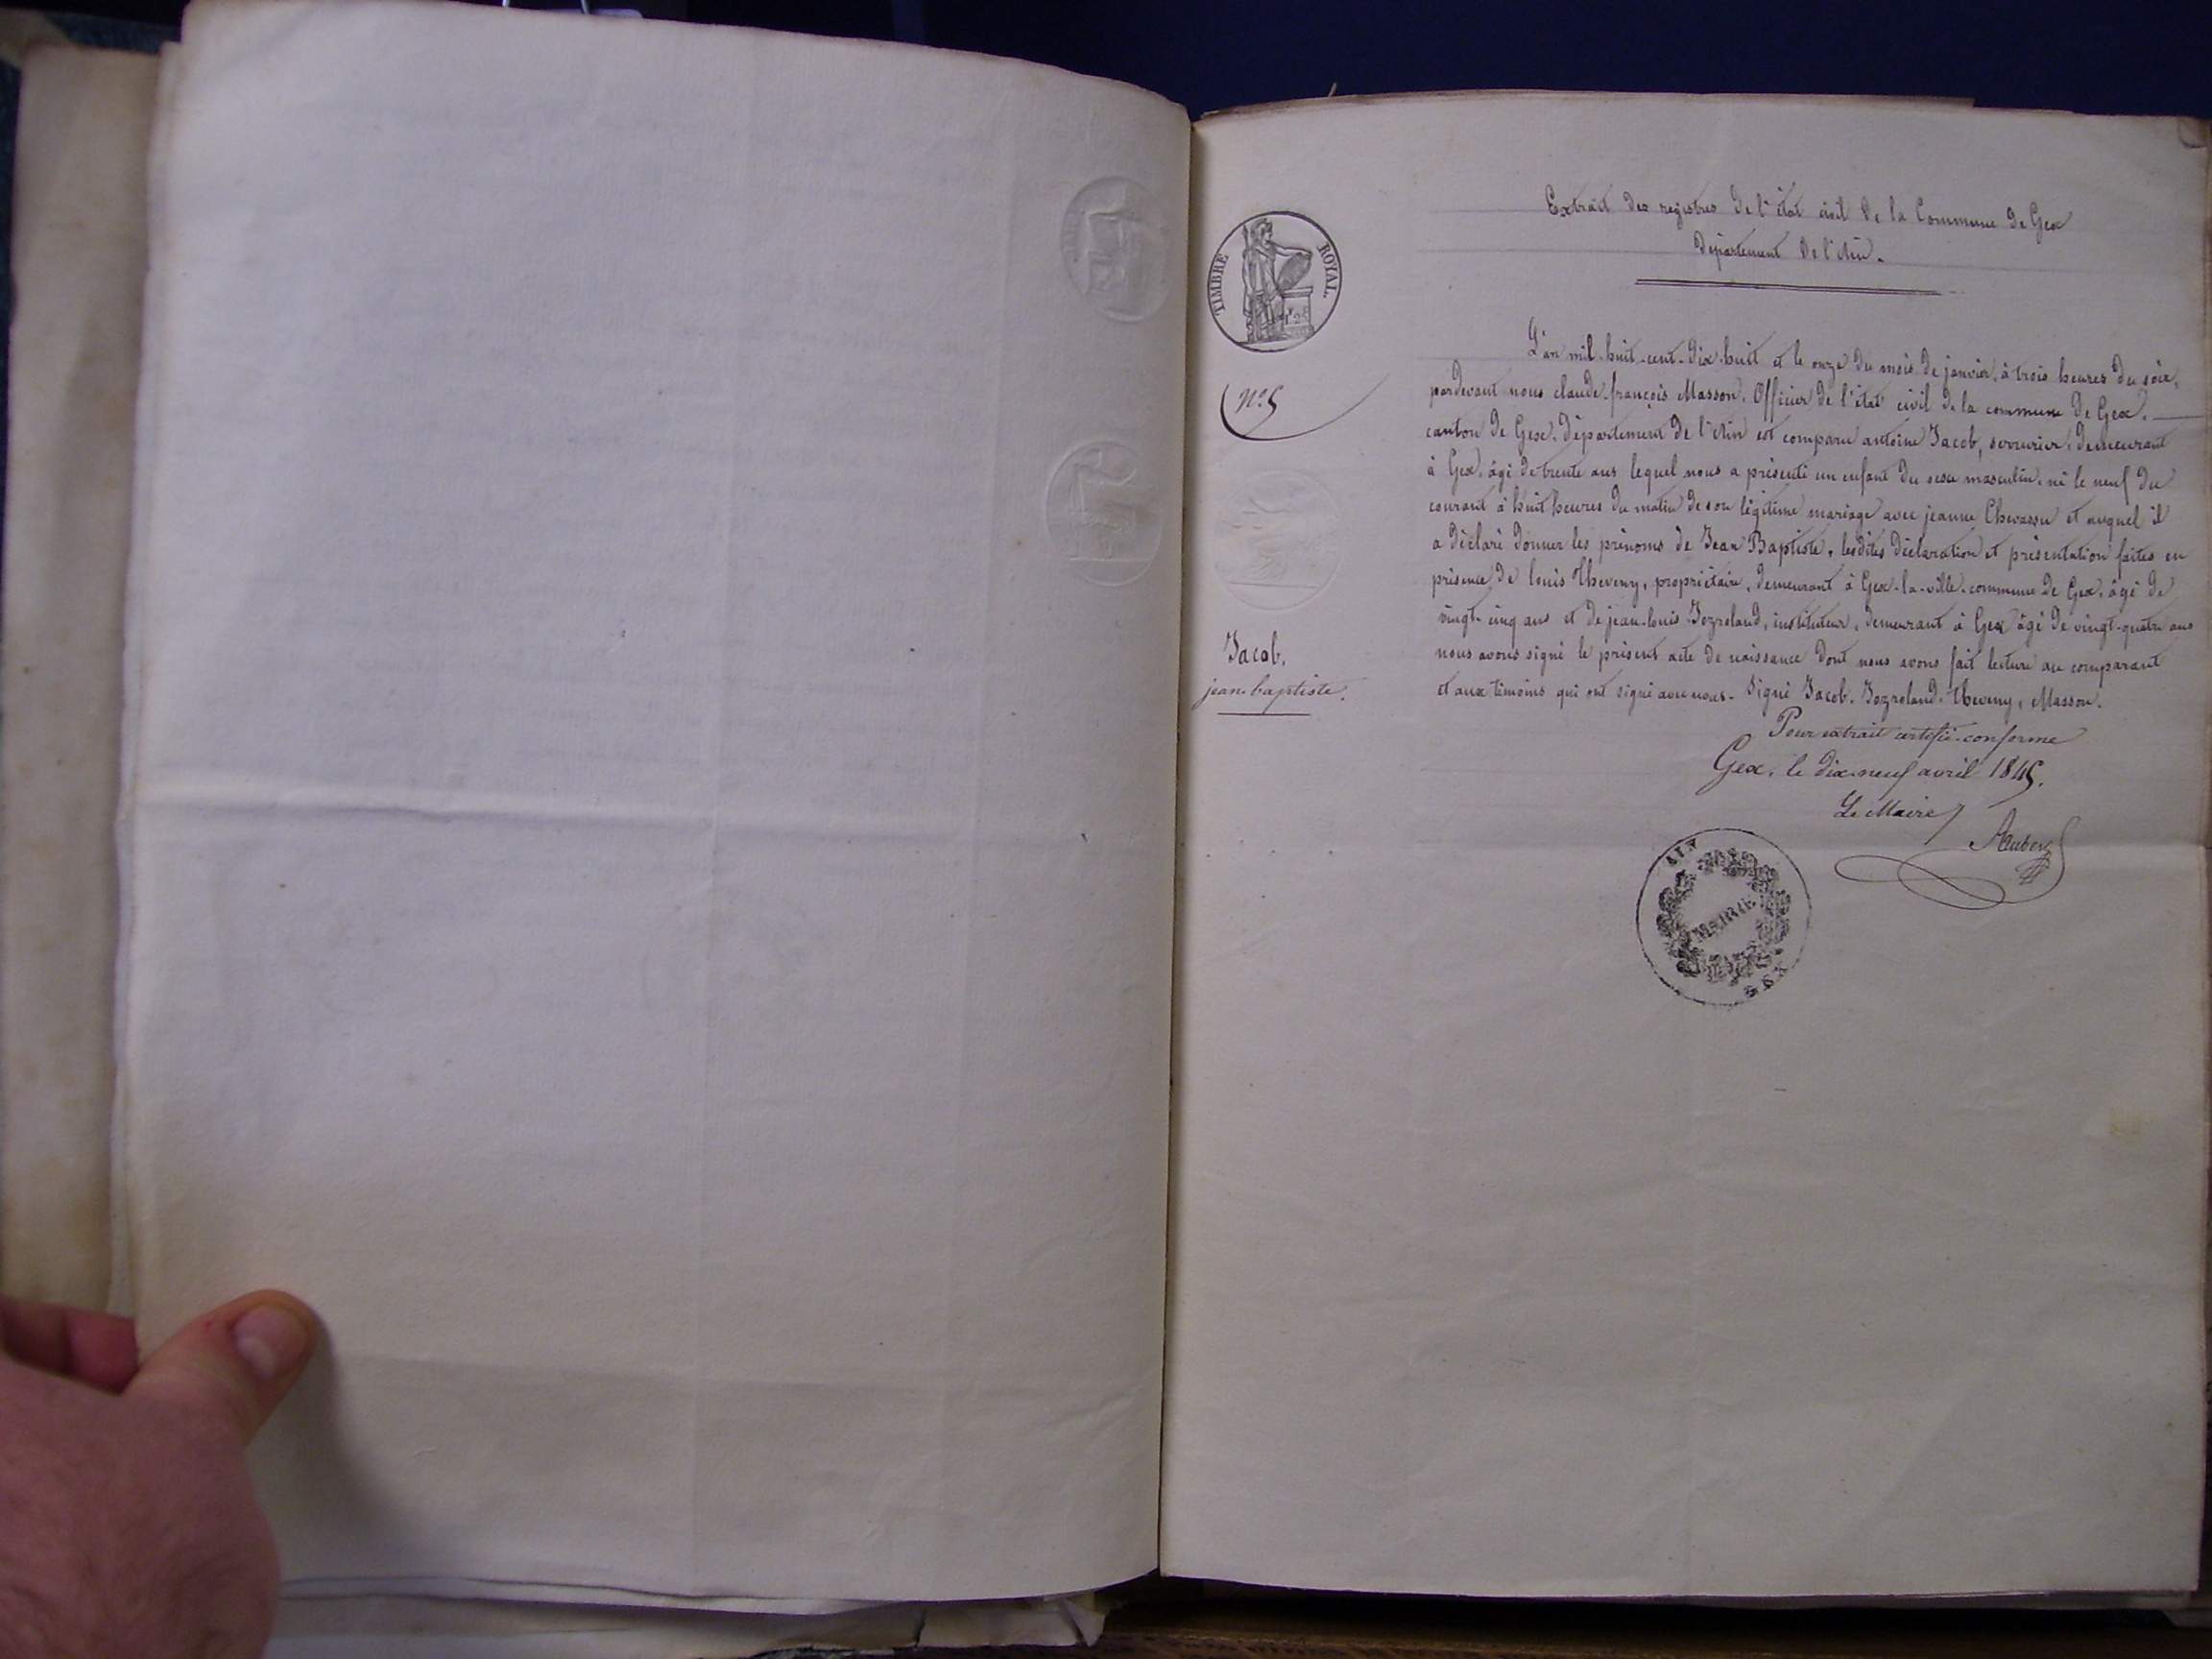 Extrait des registres de l'état civil de la Commune de Gex
Département de l'Ain.
TIMBRE ROYAL.
N.º 5
Jacob,
jean-baptiste.
L'an mil-huit-cent-dix-huit et le onze du mois de janvier, à trois heures du soir,
pardevant nous claude-françois Masson, Officier de l'état civil de la commune de Gex,
canton de Gex, département de l'Ain est comparu antoine Jacob, serrurier, demeurant
à Gex, âgé de trente ans lequel nous a présenté un enfant du sexe masculin, né le neuf du
courant à huit heures du matin de son légitime mariage avec jeanne Chevassu et auquel il
a déclaré donner les prénoms de Jean Baptiste, lesdites déclaration et présentation faites en
présence de louis Theveny, propriétaire, demeurant à Gex-la-ville-commune de Gex, âgé de
vingt-cinq ans et de jean-louis instituteur, demeurant à Gex âgé de vingt-quatre ans
nous avons signé le présent acte de naissance dont nous avons fait lecture au comparant
et aux témoins qui ont signé avec nous. Signé Jacob. Theveny, Masson.
Pour extrait certifié conforme
Gex, le dix-neuf avril 1845.
Le Maire
AIN
MAIRIE
GEX